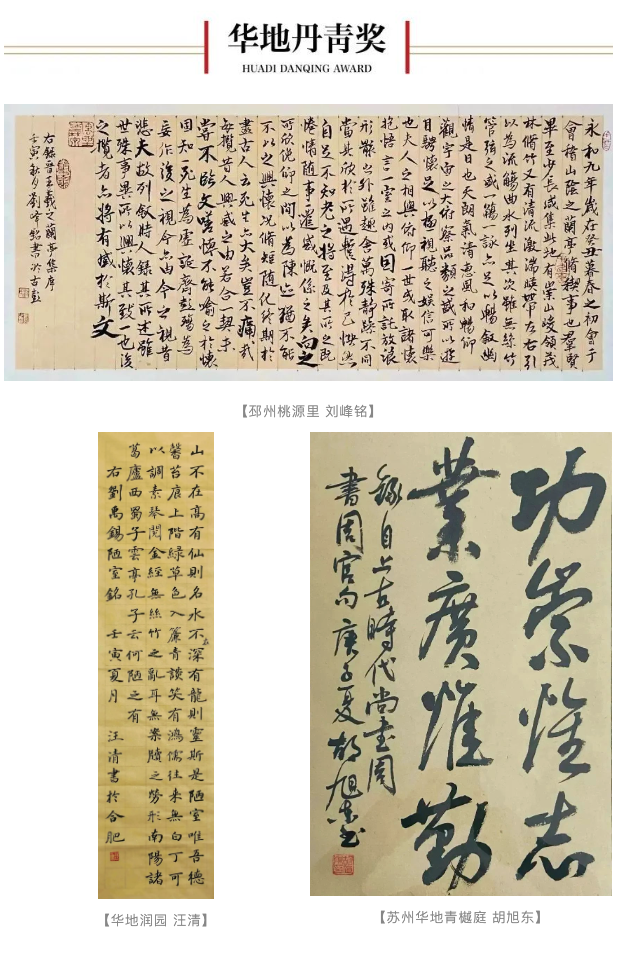 华地丹青奖
HUADI DANQING AWARD
永和九年歲在癸丑暮春之初會于
會稽山陰之蘭亭脩稧事也羣賢
畢至少長咸集此地有崇山峻領茂
林脩竹又有清流激湍暎帶左右引
以為流觴曲水列坐其次雖無絲竹
管弦之盛一觴一詠亦足以暢敘幽
情是日也天朗氣清惠風和暢仰
觀宇宙之大俯察品類之盛所以遊
目騁懷足以極視聽之娛信可樂
也夫人之相與俯仰一世或取諸懷
抱悟言一室之內或因寄所託放浪
形骸之外雖趣舍萬殊靜躁不同
當其欣於所遇蹔得於己怏然
自足不知老之將至及其所之既
惓情隨事遷感慨係之矣向之
所欣俛仰之間以為陳迹猶不能
不以之興懷況脩短隨化終期於
盡古人云死生亦大矣豈不痛哉
每攬昔人興感之由若合一契未
嘗不臨文嗟悼不能喻之於懷
固知一死生為虛誕齊彭殤為
妄作後之視今亦由今之視昔
悲夫故列敘時人錄其所述雖
世殊事異所以興懷其致一也後
之攬者亦將有感於斯文
右錄晉王羲之蘭亭集序
壬寅秋月劉峰銘書於古彭
【邳州桃源里 刘峰铭】
山不在高有仙則名水不在深有龍則靈斯是陋室唯吾德
馨苔痕上階綠草色入簾青談笑有鴻儒往來無白丁可
以調素琴閱金經無絲竹之亂耳無案牘之勞形南陽諸
葛廬西蜀子雲亭孔子云何陋之有
右劉禹錫陋室銘 壬寅夏月 汪清書於合肥
【华地润园 汪清】
功崇惟志
業廣惟勤
錄自上古時代尚書周
書周官句庚子夏胡旭東書
【苏州华地青樾庭 胡旭东】